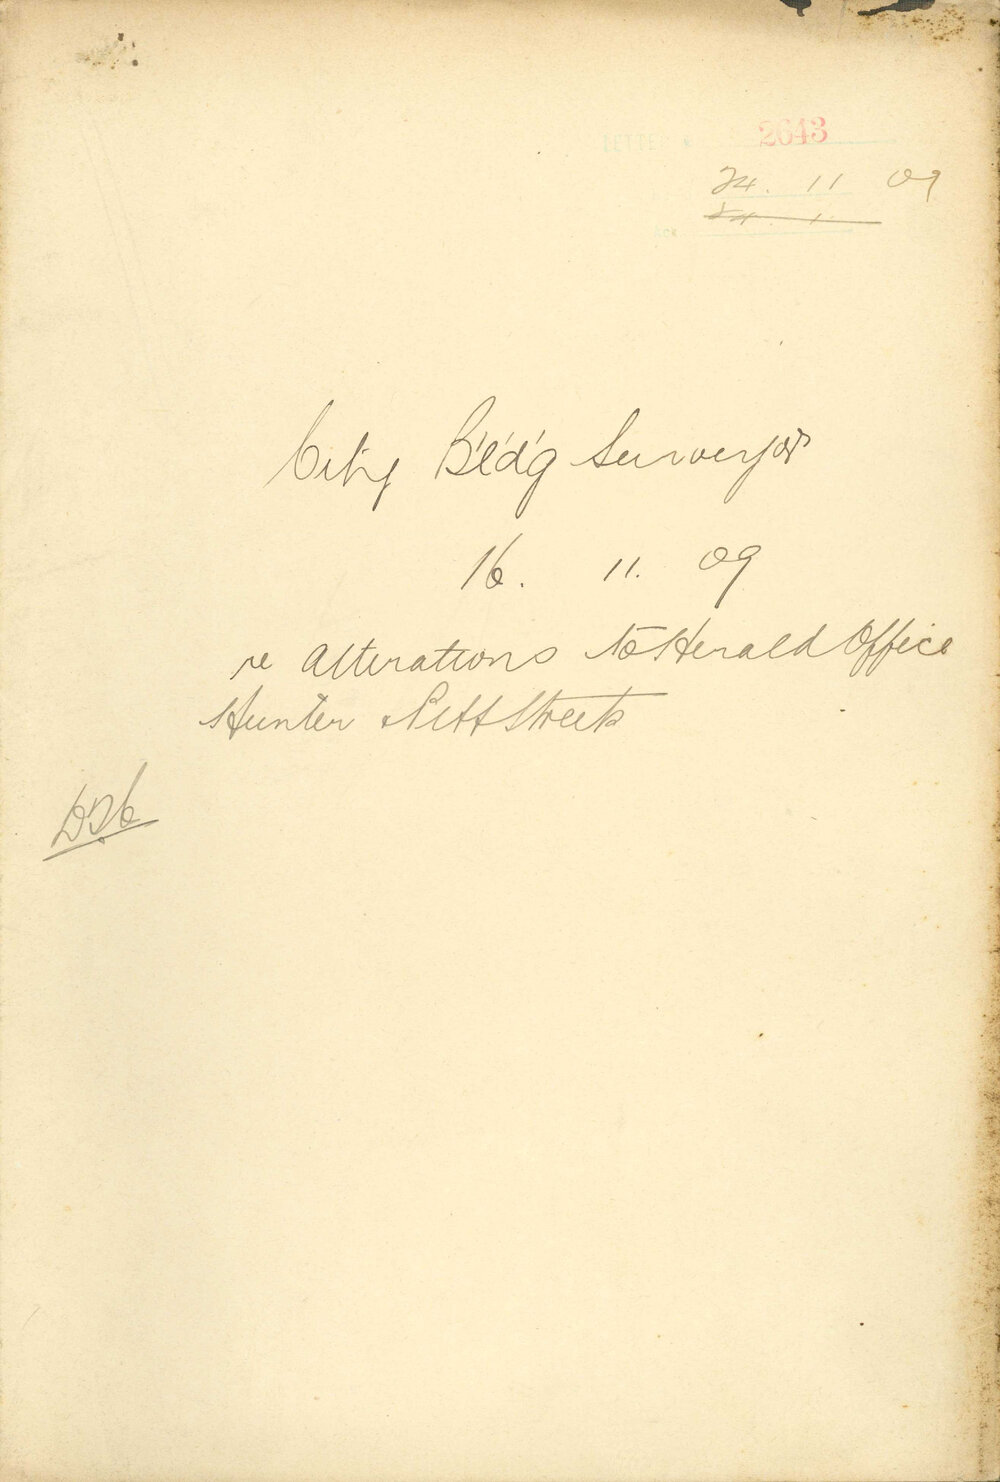 2643
24. 11 09
City B'l'd'g Surveyor
16. 11. 09
re Alterations to Herald Office
Hunter & Pitt Streets